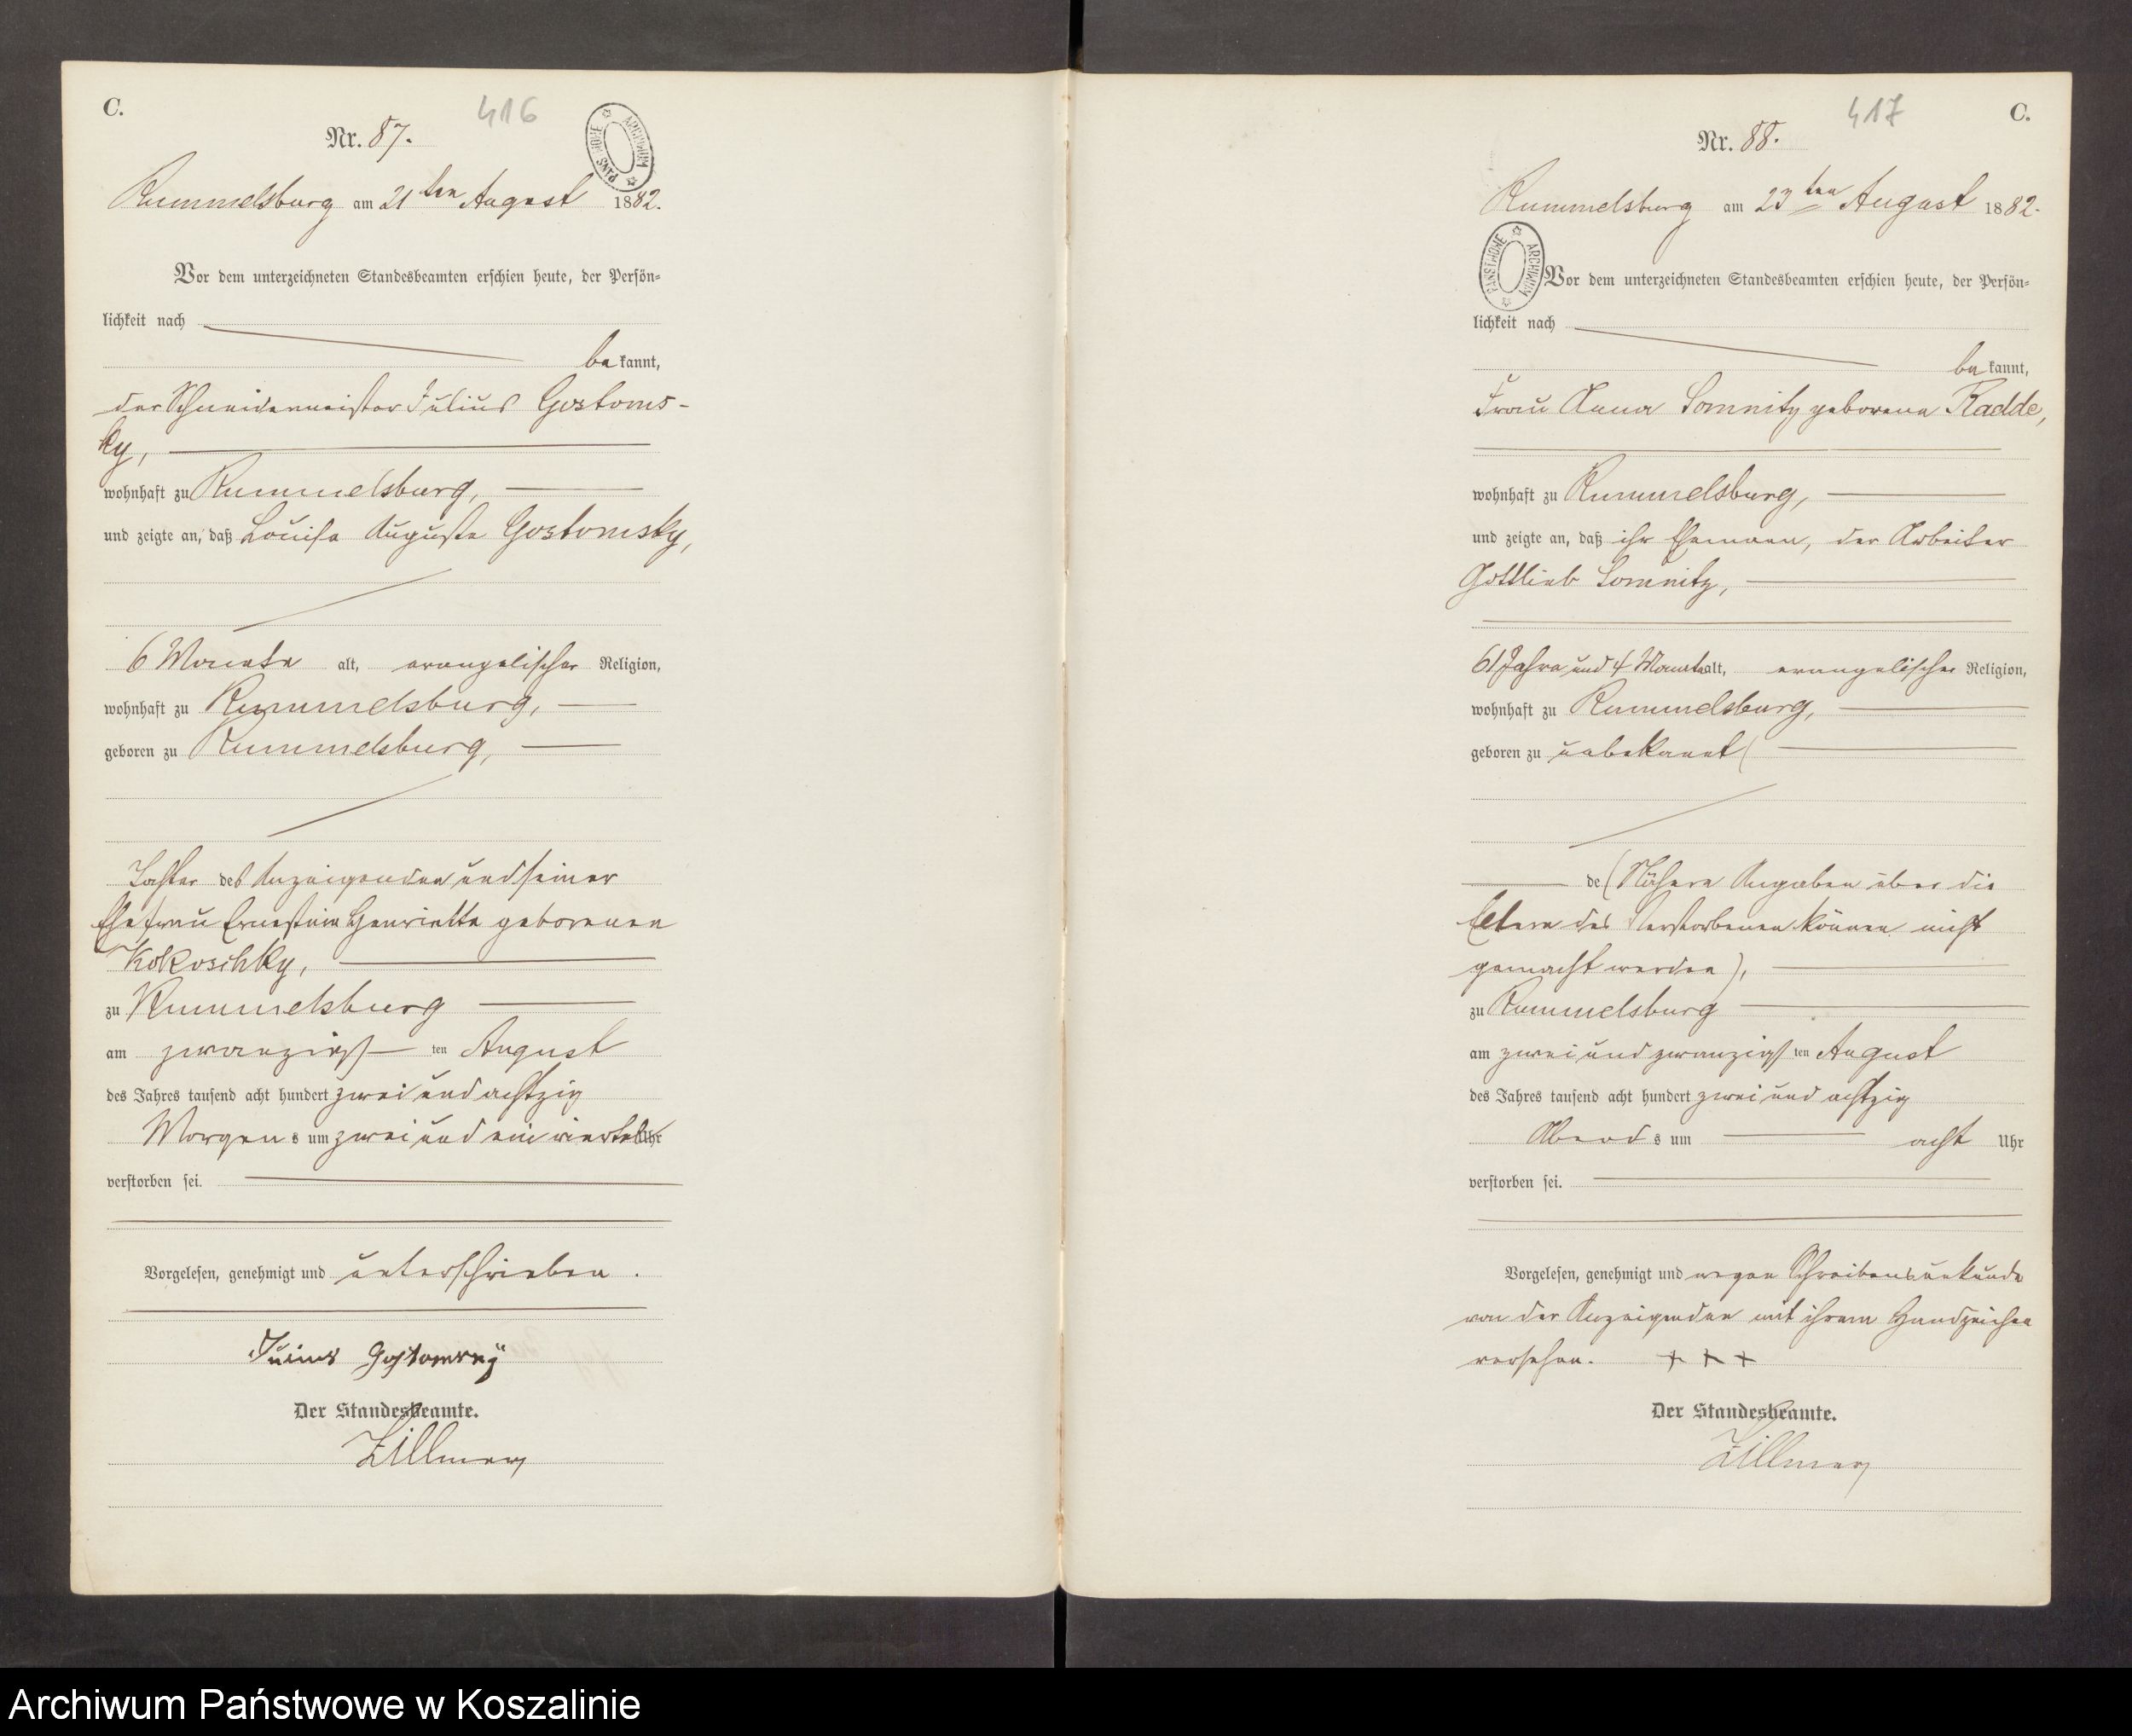 C.
416
Nr. 87.
ARCHIWUM PAŃSTWOWE
Rummelsburg am 21ten August 1882.
Vor dem unterzeichneten Standesbeamten erschien heute, der Persön=
lichkeit nach
bekannt,
der Schneidermeister Julius Gostoms-
ky,
wohnhaft zu Rummelsburg,
und zeigte an, daß Louise Auguste Gostomsky,
6 Monate alt, evangelischer Religion,
wohnhaft zu Rummelsburg,
geboren zu Rummelsburg,
Tochter des Anzeigenden und seiner
Ehefrau Ernestine Henriette geborenen
Kokoschky,
zu Rummelsburg
am zwanzigsten August
des Jahres tausend acht hundert zwei und achtzig
Morgens um zwei und ein viertel Uhr
verstorben sei.
Vorgelesen, genehmigt und unterschrieben.
Julius Gostomsky
Der Standesbeamte.
Zillmer
C.
417
Nr. 88.
Rummelsburg am 23ten August 1882.
ARCHIWUM PAŃSTWOWE
Vor dem unterzeichneten Standesbeamten erschien heute, der Persön=
lichkeit nach
bekannt,
Frau Anna Somnitz geborene Radde,
wohnhaft zu Rummelsburg,
und zeigte an, daß ihr Ehemann, der Arbeiter
Gottlieb Somnitz,
61 Jahre und 4 Monate alt, evangelischer Religion,
wohnhaft zu Rummelsburg,
geboren zu unbekannt (
de (Nähere Angaben über die
Eltern des Verstorbenen können nicht
gemacht werden),
zu Rummelsburg
am zwei und zwanzigsten August
des Jahres tausend acht hundert zwei und achtzig
Abends um acht Uhr
verstorben sei.
Vorgelesen, genehmigt und wegen Schreibensunkunde
von der Anzeigenden mit ihrem Handzeichen
versehen. + + +
Der Standesbeamte.
Zillmer
Archiwum Państwowe w Koszalinie